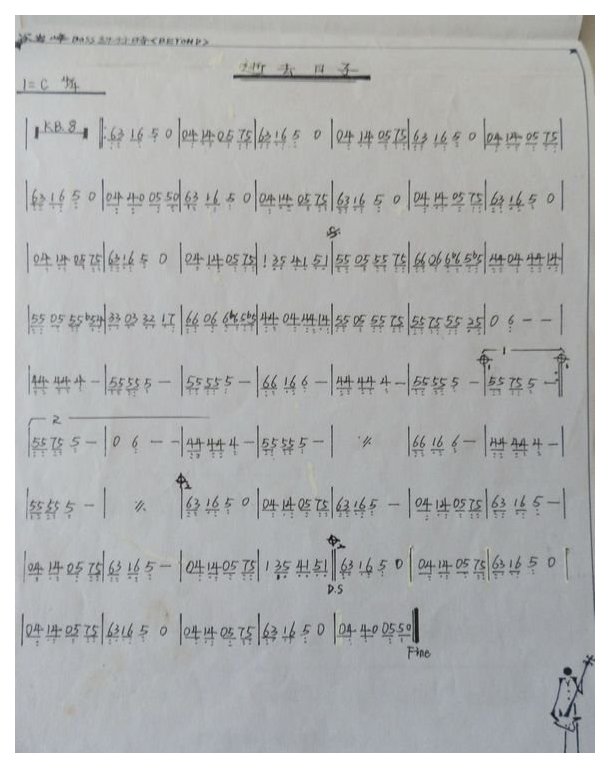 逝去日子
1=C 4/4
| K.B.8 |: 63 16 5 0 | 04 14 05 75 | 63 16 5 0 | 04 14 05 75 | 63 16 5 0 | 04 14 05 75 |
| 63 16 5 0 | 04 40 05 50 | 63 16 5 0 | 04 14 05 75 | 63 16 5 0 | 04 14 05 75 | 63 16 5 0 |
| 04 14 05 75 | 63 16 5 0 | 04 14 05 75 | 1 35 41 51 | 55 05 55 75 | 66 06 6b6 5b5 | 44 04 44 14 |
| 55 05 55 b54 | 33 03 22 17 | 66 06 6b6 5b5 | 44 04 44 14 | 55 05 55 75 | 55 75 55 25 | 0 6 - - |
1
| 44 44 4 - | 55 55 5 - | 55 55 5 - | 66 16 6 - | 44 44 4 - | 55 55 5 - | 55 75 5 - :|
2
| 55 75 5 - | 0 6 - - | 44 44 4 - | 55 55 5 - | 〃 | 66 16 6 - | 44 44 4 - |
| 55 55 5 - | 〃 | 63 16 5 0 | 04 14 05 75 | 63 16 5 - | 04 14 05 75 | 63 16 5 - |
| 04 14 05 75 | 63 16 5 - | 04 14 05 75 | 1 35 41 51 || 63 16 5 0 | 04 14 05 75 | 63 16 5 0 |
D.S
| 04 14 05 75 | 63 16 5 0 | 04 14 05 75 | 63 16 5 0 | 04 40 05 50 ||
Fine